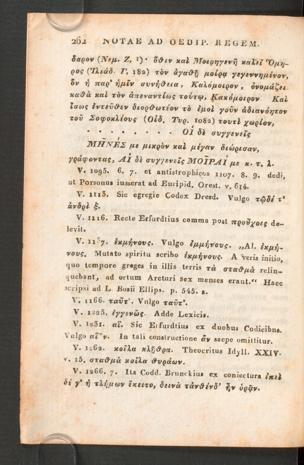 262 NOTAE AD OEDIP. REGEM.
δαρον (Νεμ. Ζ, 1)· ὅθεν καὶ Μοιρηγενῆ καλεῖ Ὅμη-
ρος (Ἰλιάδ. Γ. 182) τὸν ἀγαθῇ μοίρᾳ γεγεννημένον,
ὃν ἡ παρ' ἡμῖν συνήθεια, Καλόμοιρον, ὀνομάζει
καθὰ καὶ τὸν ἀπεναντίως τούτῳ, Κακόμοιρον Καὶ
ἴσως ἐντεῦθεν διορθωτέον τὸ ἐμοὶ γοῦν ἀδιανόητον
τοῦ Σοφοκλέους (Οἰδ. Τυρ. 1082) τουτὶ χωρίον,
. . . . . . . . ΟΙ δὲ συγγενεῖς
ΜΗΝΕΣ με μικρὸν καὶ μέγαν διώρισαν,
γράφοντας, ΑΙ δὲ συγγενεῖς ΜΟΙΡΑΙ με κ. τ. λ.
V. 1095. 6. 7. et antistrophicos 1107. 8. 9. dedi,
ut Porsonus iusserat ad Euripid. Orest. v. 614.
V. 1113. Sic egregie Codex Dresd. Vulgo τῷδέ τ'
ἀνδρὶ ξ.
V. 1116. Recte Erfurdtius comma post προὔχοις de-
levit.
V. 1137. ἑκμήνους. Vulgo ἐμμήνους. „Al. ἐκμή-
νους. Mutato spiritu scribo ἑκμήνους. A veris initio,
quo tempore greges in illis terris τὰ σταθμὰ relin-
quebant, ad ortum Arcturi sex menses erant." Haec
scripsi ad L. Bosii Ellips. p. 545. s.
V. 1166. ταῦτ'. Vulgo ταῦτ'.
V. 1225. ἐγγενῶς. Adde Lexicis.
V. 1231. αἵ. Sic Erfurdtius ex duobus Codicibus.
Vulgo αἵ 'ν. In tali constructione ἄν saepe omittitur.
V. 1262. κοῖλα κλῇθρα. Theocritus Idyll. XXIV.
v. 15. σταθμὰ κοῖλα θυράων.
V. 1266. 7. Ita Codd. Brunckius ex coniectura ἐπεὶ
δὲ γ' ἡ τλήμων ἔκειτο, δεινὰ τἀνθένδ' ἦν ὁρᾷν.